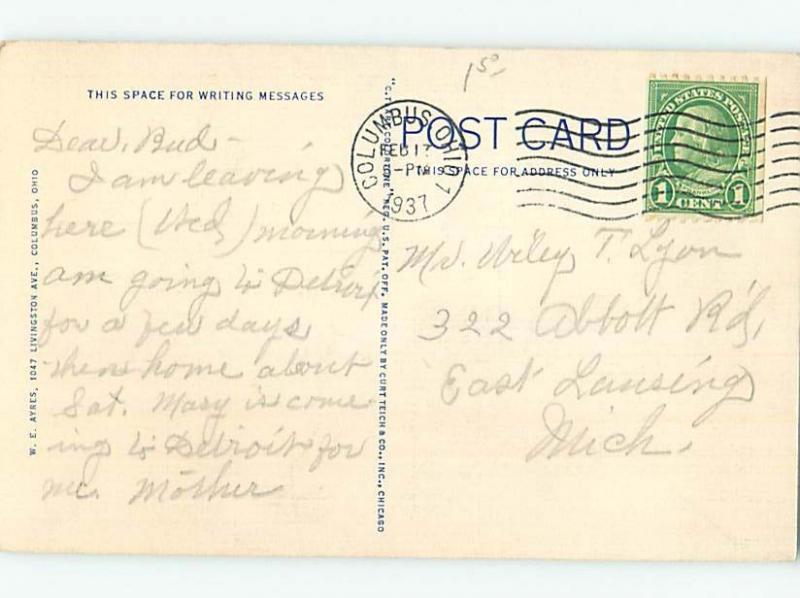 1 50
THIS SPACE FOR WRITING MESSAGES
POST CARD
THIS SPACE FOR ADDRESS ONLY
COLUMBUS, OHIO 1
FEB 17
-PM
1937
UNITED STATES POSTAGE
1 CENT 1
Dear Bud -
I am leaving
here (Wed) morning
am going to Detroit
for a few days
then home about
Sat. Mary is come-
ing to Detroit for
me. Mother
Mr. Wiley T. Lyon
322 Abbott Rd,
East Lansing
Mich.
W. E. AYRES, 1047 LIVINGSTON AVE., COLUMBUS, OHIO
"C. T. ART-COLORTONE" REG. U.S. PAT. OFF. MADE ONLY BY CURT TEICH & CO., INC., CHICAGO